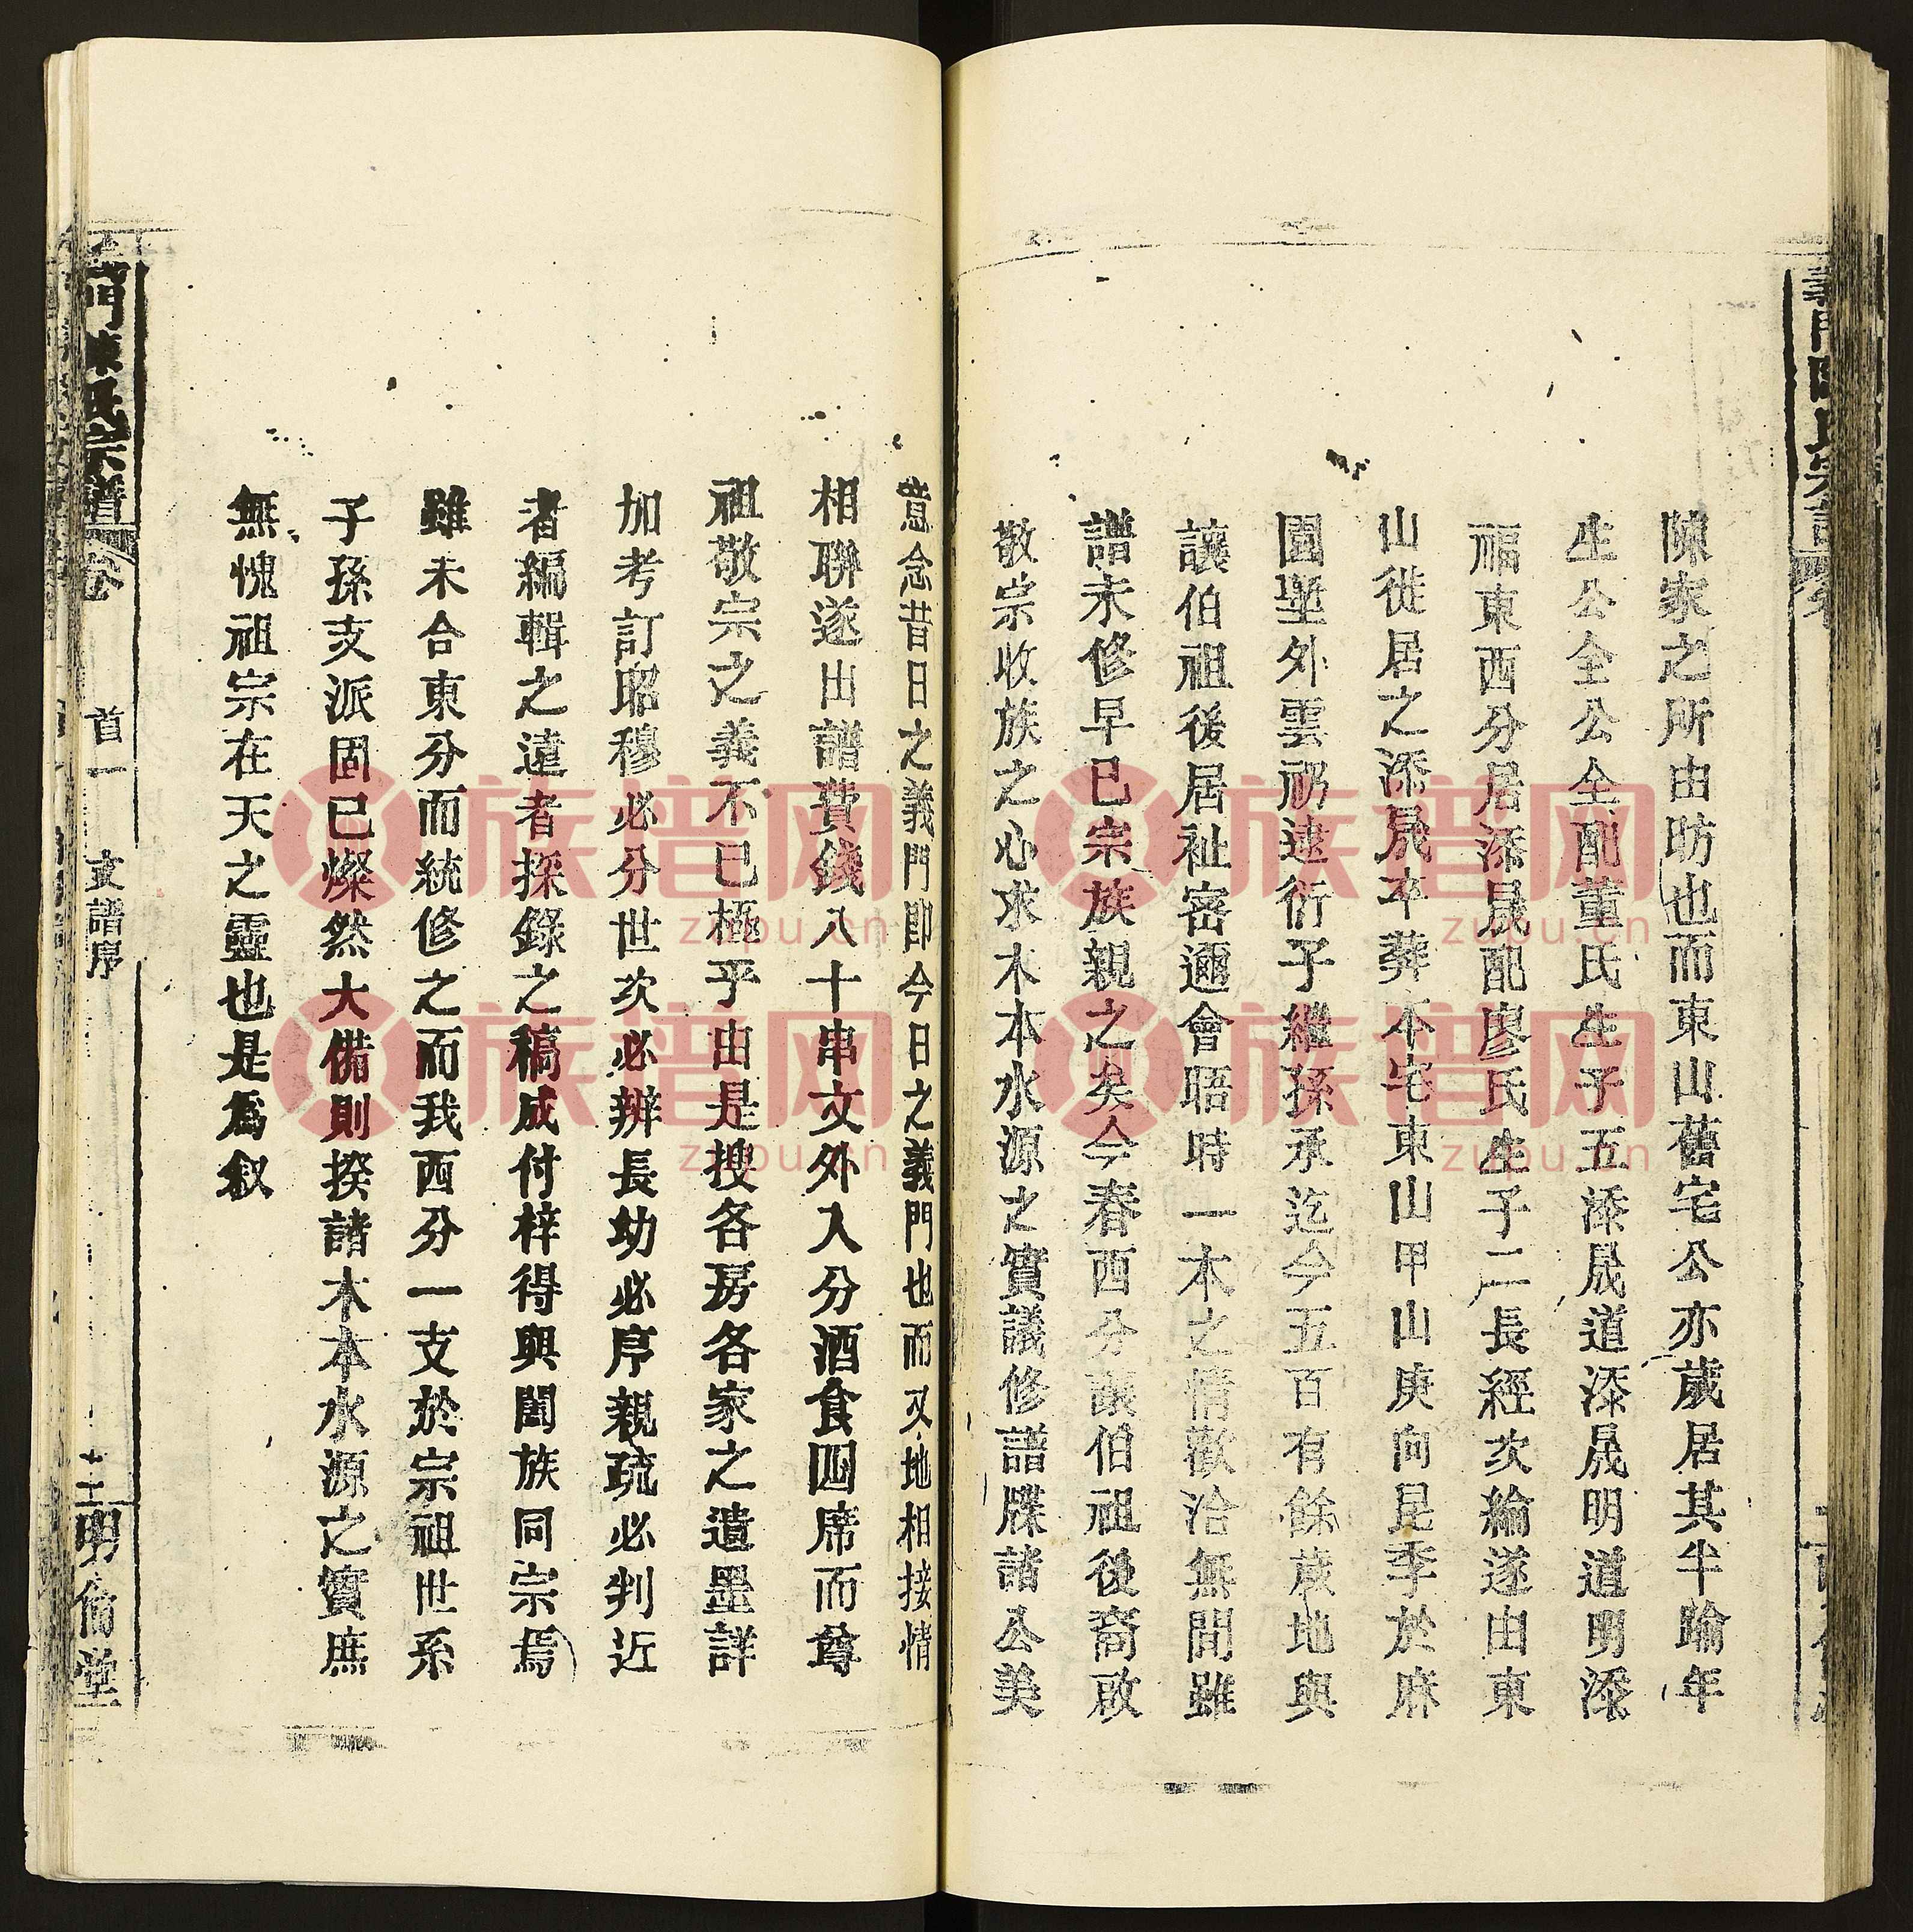 陳家之所由昉也而東山舊宅公亦歲居其半踰年
生公公全全公公全配董氏生子五添晟道添晟明道明添
福東西分居添晟配廖氏生子二長經次綸遂由東
山徙居之添晟卒葬本宅東山甲山庚向昆季於麻
園壟外雲礽逮衍子繼孫承迄今五百有餘歲地與
讓伯祖後居祉密邇會晤時一木之情歡洽無間雖
譜未修早已宗族親之矣今春西分讓伯祖後裔啟
敬宗收族之心求木本水源之實議修譜牒諸公美
意念昔日之義門即今日之義門也而又地相接情
相聯遂出譜費錢八十串文外入分酒食四席而尊
祖敬宗之義不已極乎由是搜各房各家之遺墨詳
加考訂昭穆必分世次必辨長幼必序親疏必判近
者編輯之遠者採錄之稿成付梓得與闔族同宗焉
雖未合東分而統修之而我西分一支於宗祖世系
子孫支派固已燦然大備則揆諸木本水源之實庶
無愧祖宗在天之靈也是為叙
門陳氏宗譜 卷 首一 支譜序 十二 明倫堂
族谱网
zupu.cn
族谱网
zupu.cn
族谱网
zupu.cn
族谱网
zupu.cn